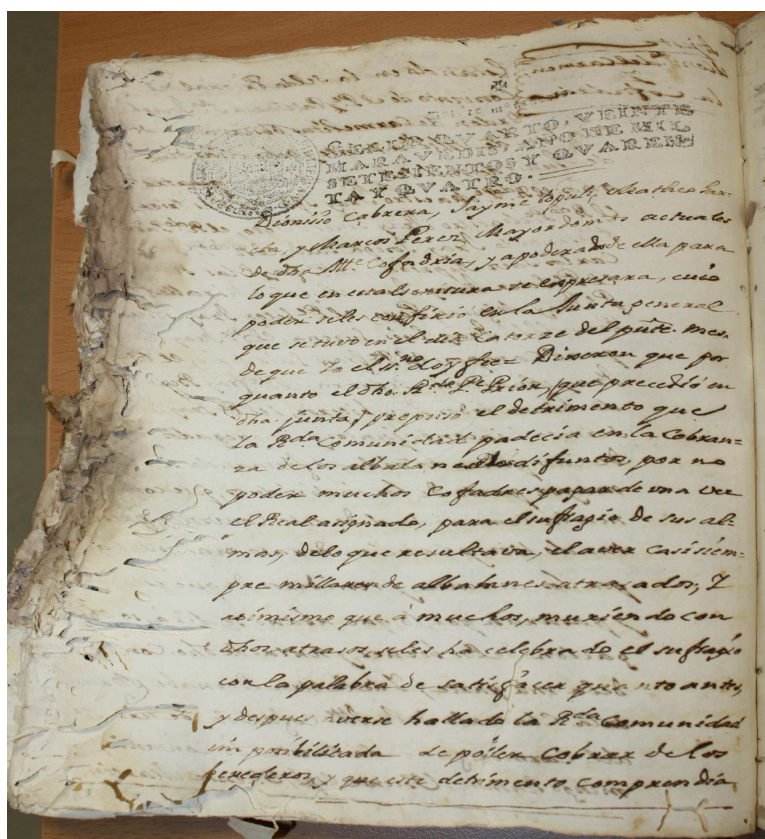 SELLO QVARTO, VEINTE
MARAVEDIS, AÑO DE MIL
SETECIENTOS Y QVAREN
TA Y QVATRO.
Dionisio Cabrera, Jayme
y Marcos Perez, Mayordomos actuales
de dha Cofadria, y apoderados de ella para
lo que en esta escritura se expresara, cuio
poder se les confirio en la Junta general
que se tuvo en el dia catorze del pnte. mes,
de que Yo el ss.no doy fee = Dixeron que por
quanto el dho. R.do P.e Prior, (que precedió en
dha. junta) propuso el detrimento que
la R.da Comunidad padecia en la Cobran=
za de los albaranes de los difuntos, por no
poder muchos Cofadres pagar de una vez
el Real asignado, para el sufragio de sus al-
mas, de lo que resultava, el aver casi siem-
pre millares de albaranes atrasados; Y
asimismo que à muchos, muriendo con
dhos atrasos, se les ha celebrado el sufragio
con la palabra de satisfacer quanto antes,
y despues averse hallado la R.da Comunidad
imposibilitada de poder cobrar de los
herederos, y que este detrimento comprendia